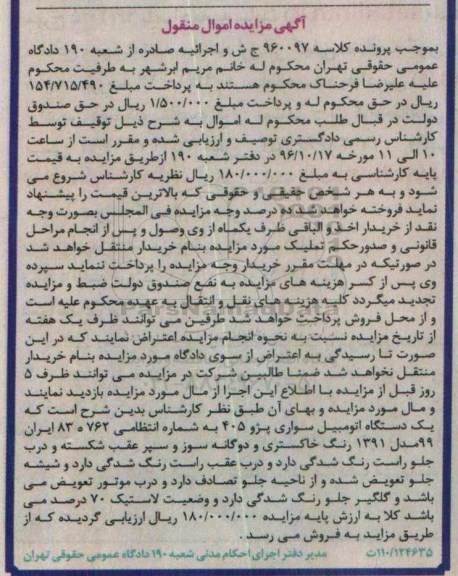 آگهی مزایده اموال منقول
بموجب پرونده کلاسه ۹۶۰۰۹۷ ج ش و اجرائیه صادره از شعبه ۱۹۰ دادگاه
عمومی حقوقی تهران محکوم له خانم مریم ابرشهر به طرفیت محکوم
علیه علیرضا فرحناک محکوم هستند به پرداخت مبلغ ۱۵۴/۷۱۵/۴۹۰
ریال در حق محکوم له و پرداخت مبلغ ۱/۵۰۰/۰۰۰ ریال در حق صندوق
دولت در قبال طلب محکوم له اموال به شرح ذیل توقیف توسط
کارشناس رسمی دادگستری توصیف و ارزیابی شده و مقرر است از ساعت
۱۰ الی ۱۱ مورخه ۹۶/۱۰/۱۷ در دفتر شعبه ۱۹۰ ازطریق مزایده به قیمت
پایه کارشناسی به مبلغ ۱۸۰/۰۰۰/۰۰۰ ریال نظریه کارشناس شروع می
شود و به هر شخص حقیقی و حقوقی که بالاترین قیمت را پیشنهاد
نماید فروخته خواهد شد ده درصد وجه مزایده فی المجلس بصورت وجه
نقد از خریدار اخذ و الباقی ظرف یکماه از وی وصول و پس از انجام مراحل
قانونی و صدورحکم تملیک مورد مزایده بنام خریدار منتقل خواهد شد
در صورتیکه در مهلت مقرر خریدار وجه مزایده را پرداخت ننماید سپرده
وی پس از کسر هزینه های مزایده به نفع صندوق دولت ضبط و مزایده
تجدید میگردد کلیه هزینه های نقل و انتقال به عهده محکوم علیه است
و از محل فروش پرداخت خواهد شد طرفین می توانند ظرف یک هفته
از تاریخ مزایده نسبت به نحوه انجام مزایده اعتراض نمایند که در این
صورت تا رسیدگی به اعتراض از سوی دادگاه مورد مزایده بنام خریدار
منتقل نخواهد شد ضمنا طالبین شرکت در مزایده می توانند ظرف ۵
روز قبل از مزایده با اطلاع این اجرا از مال مورد مزایده بازدید نمایند
و مال مورد مزایده و بهای آن طبق نظر کارشناس بدین شرح است که
یک دستگاه اتومبیل سواری پژو ۴۰۵ به شماره انتظامی ۷۶۲ ه ۸۳ ایران
۹۹مدل ۱۳۹۱ رنگ خاکستری و دوگانه سوز و سپر عقب شکسته و درب
جلو راست رنگ شدگی دارد و درب عقب راست رنگ شدگی دارد و شیشه
جلو تعویض شده و از ناحیه جلو تصادف دارد و درب موتور تعویض می
باشد و گلگیر جلو رنگ شدگی دارد و وضعیت لاستیک ۷۰ درصد می
باشد کلا به ارزش پایه مزایده ۱۸۰/۰۰۰/۰۰۰ ریال ارزیابی گردیده که از
طریق مزایده به فروش می رسد .
۱۱۰/۱۲۴۶۳۵ث مدیر دفتر اجرای احکام مدنی شعبه ۱۹۰ دادگاه عمومی حقوقی تهران